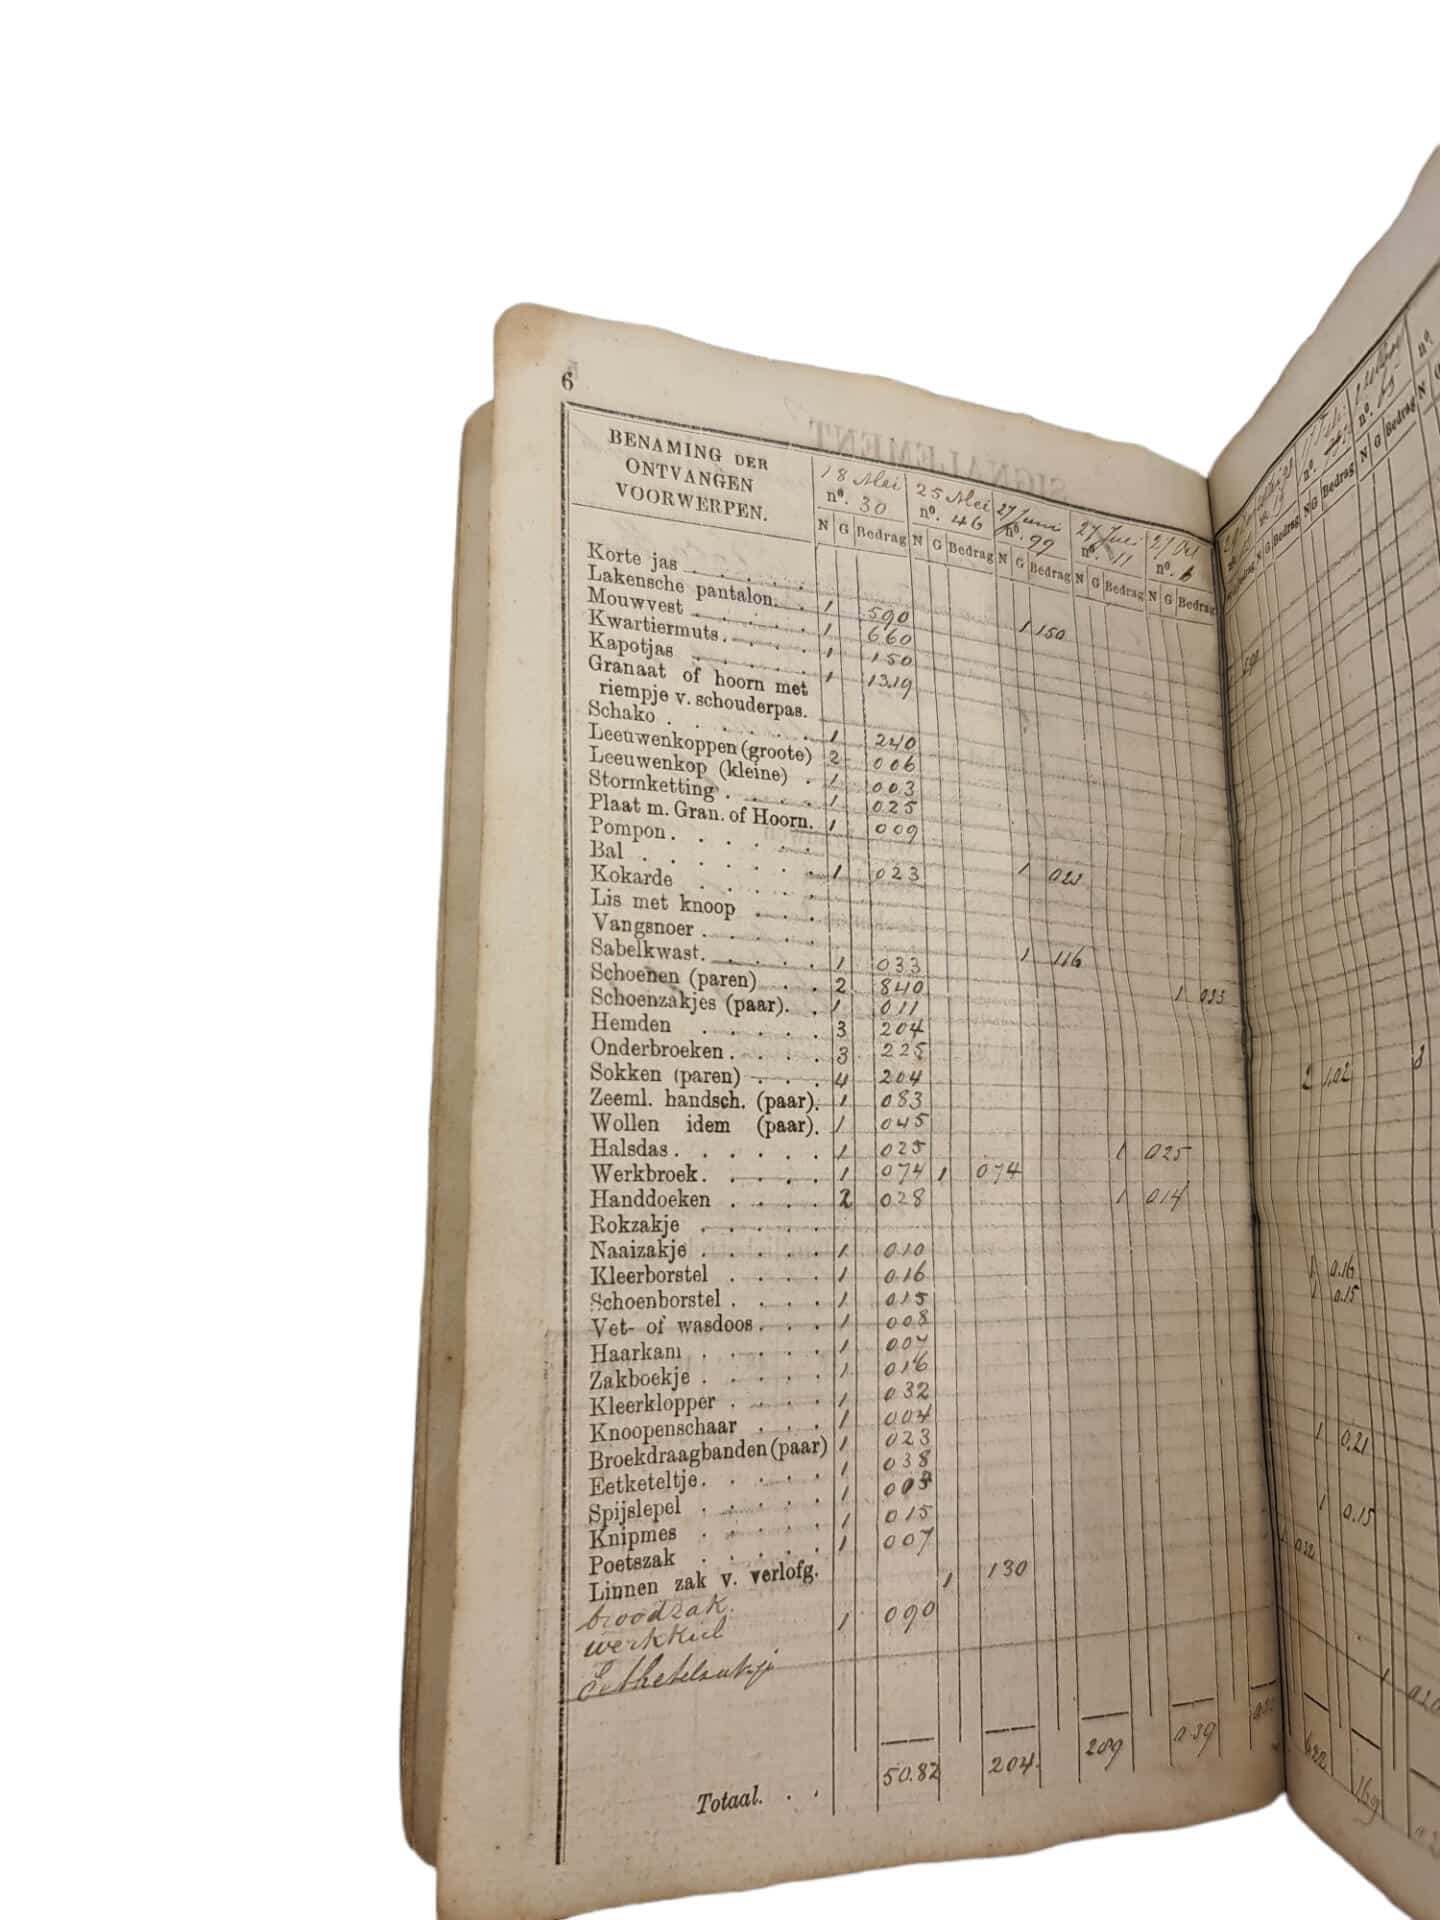 6
BENAMING DER
ONTVANGEN
VOORWERPEN.
18 Mei 25 Mei 27 Juni 27 Juli
nº. 30 nº. 46 nº. 99 nº. 11 nº. 6
N G Bedrag N G Bedrag N G Bedrag N G Bedrag N G Bedrag
Korte jas
Lakensche pantalon. 1 590 1 150
Mouwvest 1 660
Kwartiermuts. 1 150
Kapotjas 1 13.19
Granaat of hoorn met
riempje v. schouderpas.
Schako 1 240
Leeuwenkoppen (groote) 2 006
Leeuwenkop (kleine) 1 003
Stormketting 1 025
Plaat m. Gran. of Hoorn. 1 009
Pompon
Bal 1 023 1 023
Kokarde
Lis met knoop
Vangsnoer
Sabelkwast. 1 033 1 116
Schoenen (paren) 2 840
Schoenzakjes (paar). 1 011 1 033
Hemden 3 204
Onderbroeken 3 225
Sokken (paren) 4 204 2 1.02
Zeeml. handsch. (paar). 1 083
Wollen idem (paar). 1 045
Halsdas 1 025 1 025
Werkbroek 1 074 1 074
Handdoeken 2 028 1 014
Rokzakje
Naaizakje 1 010
Kleerborstel 1 016 1 0.16
Schoenborstel 1 015 1 0.15
Vet- of wasdoos 1 008
Haarkam 1 007
Zakboekje 1 016
Kleerklopper 1 032
Knoopenschaar 1 004
Broekdraagbanden (paar) 1 023 1 0.21
Eetketeltje 1 038
Spijslepel 1
Knipmes 1 015 1 0.15
Poetszak 1 007
Linnen zak v. verlofg. 1 130
broodzak. 1 090
werkkiel
Totaal. 50.82 204. 209 039
nº. nº.
N G Bedrag N G Bedrag N G Bedrag N